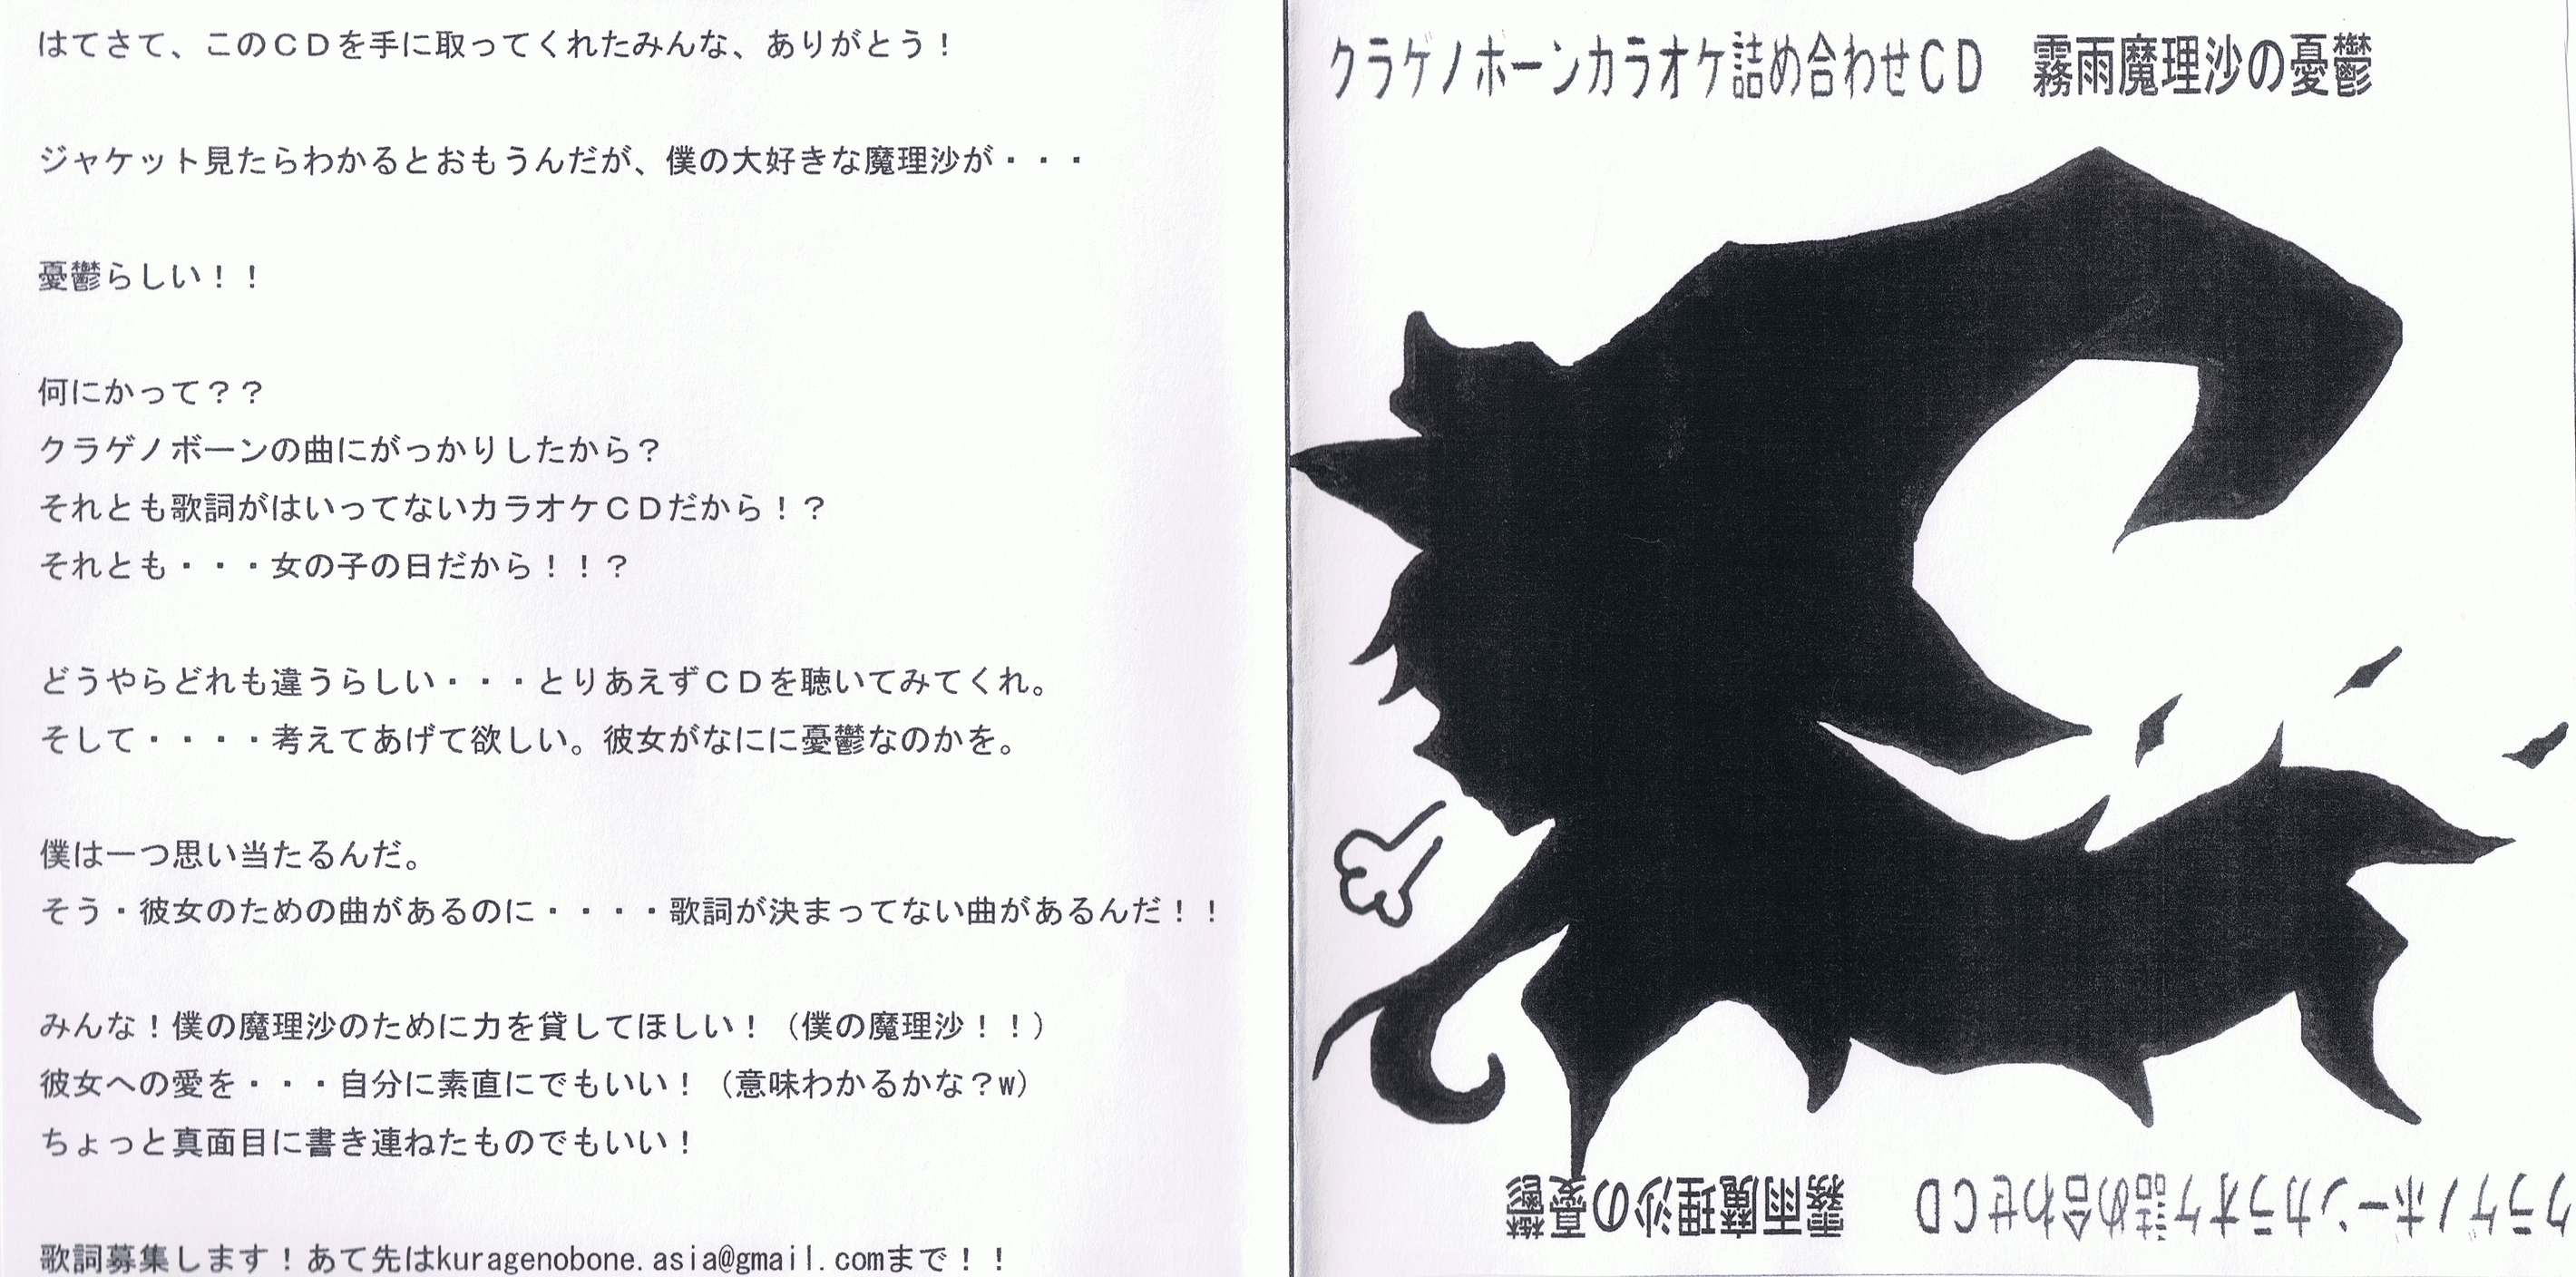 はてさて、このＣＤを手に取ってくれたみんな、ありがとう！
ジャケット見たらわかるとおもうんだが、僕の大好きな魔理沙が・・・
憂鬱らしい！！
何にかって？？
クラゲノボーンの曲にがっかりしたから？
それとも歌詞がはいってないカラオケＣＤだから！？
それとも・・・女の子の日だから！！？
どうやらどれも違うらしい・・・とりあえずＣＤを聴いてみてくれ。
そして・・・・考えてあげて欲しい。彼女がなにに憂鬱なのかを。
僕は一つ思い当たるんだ。
そう・彼女のための曲があるのに・・・・歌詞が決まってない曲があるんだ！！
みんな！僕の魔理沙のために力を貸してほしい！（僕の魔理沙！！）
彼女への愛を・・・自分に素直にでもいい！（意味わかるかな？w）
ちょっと真面目に書き連ねたものでもいい！
歌詞募集します！あて先はkuragenobone.asia@gmail.comまで！！
クラゲノボーンカラオケ詰め合わせＣＤ　霧雨魔理沙の憂鬱
クラゲノボーンカラオケ詰め合わせＣＤ　霧雨魔理沙の憂鬱